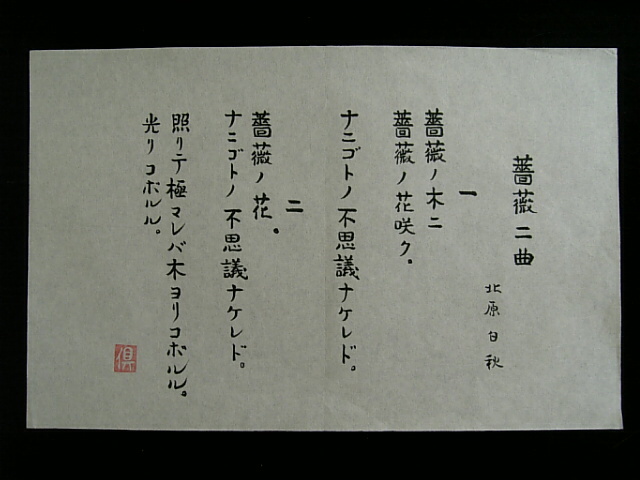 薔薇二曲
北原白秋
一
薔薇ノ木ニ
薔薇ノ花咲ク。
ナニゴトノ不思議ナケレド。
二
薔薇ノ花。
ナニゴトノ不思議ナケレド。
照リテ極マレバ木ヨリコボルル。
光リコボルル。